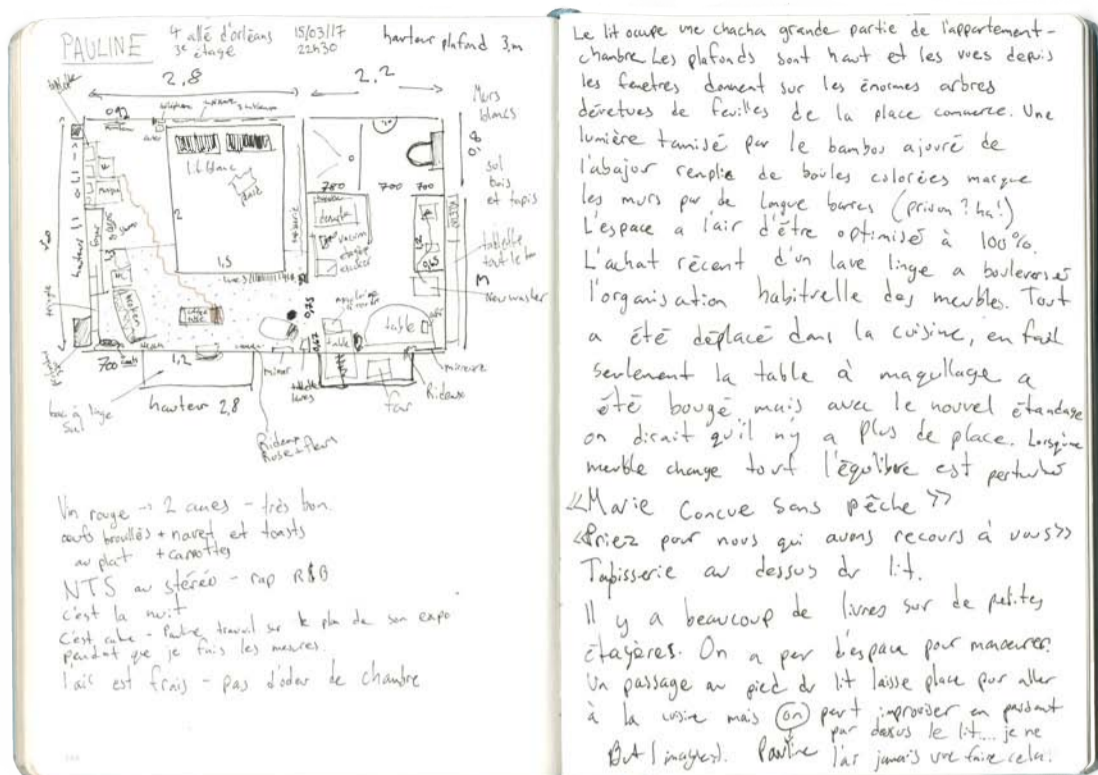 PAULINE
4 allé d'orléans
3e étage
15/03/17
22h30
hauteur plafond 3,m
2,8
2,2
Murs
blancs
0,92
Lit blanc
sol
bois
et tapis
780
700
700
2
1,5
tablette
tout le
New washer
coffee
table
table
table
miroir
700
1,2
hauteur 2,8
four
Rideaux
bac à linge
Sal
Rideaux
Rose à fleurs
Vin rouge → 2 cuves - très bon.
oeufs brouillés + navet et toasts
au plat + carrottes
NTS au stéréo - rap R&B
c'est la nuit
C'est calme - Pauline travail sur le plan de son expo
pendant que je fais les mesures.
l'air est frais - pas d'odeur de chambre
Le lit occupe une chacha grande partie de l'appartement-
chambre. Les plafonds sont haut et les vues depuis
les fenetres donnent sur les énormes arbres
dévetues de feuilles de la place commerce. Une
lumière tamisé par le bambou ajouré de
l'abajour remplie de boules colorées marque
les murs par de longue barres (prison? ha!)
L'espace a l'air d'être optimisé à 100%.
L'achat récent d'un lave linge a bouleversé
l'organisation habituelle des meubles. Tout
a été déplacé dans la cuisine, en fait
seulement la table à maquillage a
été bougé mais avec le nouvel étandage
on dirait qu'il n'y a plus de place. Lorsqu'une
meuble change tout l'équilibre est perturbé
«Marie Concue sans pêche»
«Priez pour nous qui avons recours à vous»
Tapisserie au dessus du lit.
Il y a beaucoup de livres sur de petites
étagères. On a peu d'espace pour manoeuvrer.
Un passage au pied du lit laisse place pour aller
à la cuisine mais on peut improviser en passant
par dessus le lit... je ne
But (images). Pauline l'ai jamais vue faire cela.